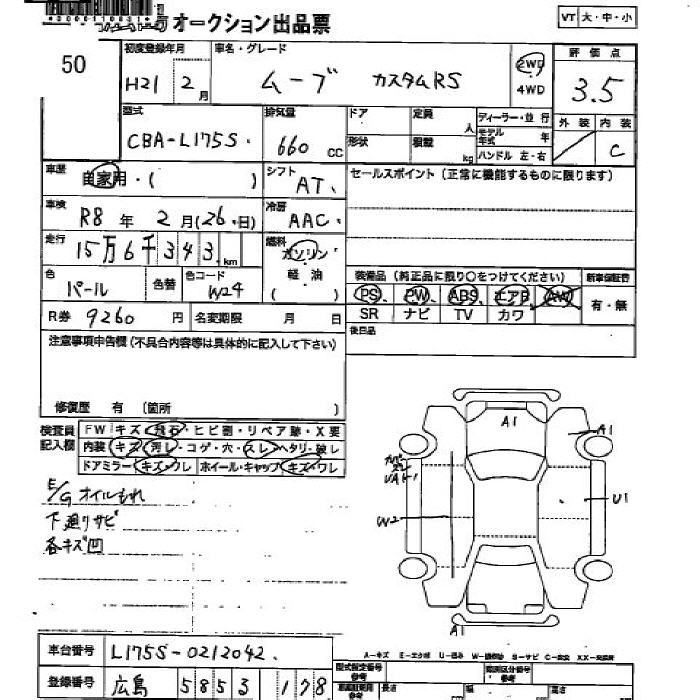 オークション出品票
VT 大・中・小
50
初度登録年月 車名・グレード 評価点
H21 2月 ムーブ カスタムRS 2WD 4WD 3.5
型式 排気量 ドア 定員 人 ディーラー・並行 外装 内装
CBA-L175S 660 CC 形状 積載 kg モデル年式 年 C
ハンドル 左・右
車歴 自家用・( ) シフト AT. セールスポイント(正常に機能するものに限ります)
車検 R8年 2月(26日) 冷房 AAC.
走行 15万6千343 km 燃料 ガソリン
色 パール 色替 色コード W24 軽油 ( )
装備品(純正品に限り○をつけてください) 新車保証書
PS、PW、ABS、エアB、AW 有・無
SR ナビ TV カワ
R券 9260円 名変期限 月 日 後日品
注意事項申告欄(不具合内容等は具体的に記入して下さい)
修復歴 有 (箇所 )
検査員記入欄 FW キズ・飛石・ヒビ割・リペア跡・X要
内装 キズ・汚レ・コゲ・穴・スレ・ヘタリ・破レ
ドアミラー キズ・ワレ ホイール・キャップ キズ・ワレ
E/Gオイルもれ
下廻りサビ
各キズ凹
A1
A1
U1
W2
A1
A-キズ E-エクボ U-凹み W-補修跡 S-サビ C-腐食 XX-交換済
車台番号 L175S-0212042.
登録番号 広島 5853 178
型式指定番号 参考 類別区分番号 参考
長さ 幅 高さ